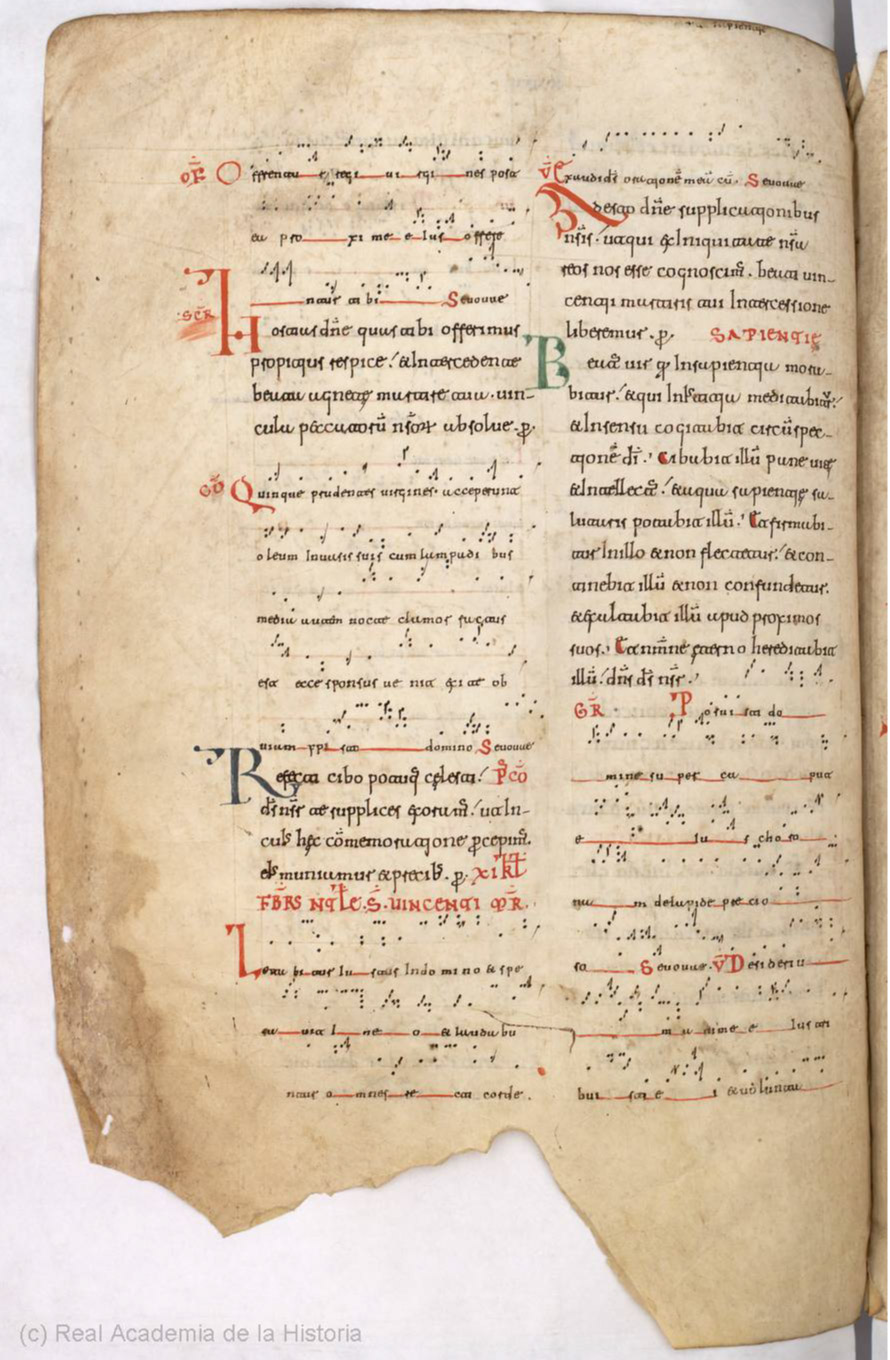 OF Offerentur regi uirgines post
ea proxime eius offere
ntur tibi Seuouae
SCR Hostias dñe quas tibi offerimus
propitius respice & intercedente
beata agnete martire tua. uin-
cula peccatorū nr̄orum absolue. p.
CO Quinque prudentes uirgines acceperunt
oleum in uasis suis cum lampadibus
mediā autem nocte clamor factus
est ecce sponsus uenit exite ob
uiam xpisto domino Seuouae
Refecti cibo potuq celesti P̄CO
ds̄ nr̄ te supplices exoram̄ ut in
cuiꝰ hęc cōmemoratione percepim̄.
eiꝰ muniamur & precib. p. XI KL
FBRS NTLE. S. UINCENTI MR.
Letabitur iustus in domino & spe
rabit in eo & laudabu
ntur omnes recti corde.
V Exaudi ds̄ orationē meā cū. Seuouae
Adesto dñe supplicationibus
nr̄is. ut qui ex iniquitate nr̄a
reos nos esse cognoscim̄. beati uin-
centii martiris tui intercessione
liberemur. p. SAPIENTIĘ
Beatꝰ uir q̄ in sapientia mora-
bitur & qui in iustitia meditabitur
& in sensu cogitabit circūspec-
tionē di̅. Cibabit illū pane uitę
& intellectꝰ & aqua sapientię sa-
lutaris potabit illū. Et firmabi-
tur in illo & non flectetur & con-
tinebit illū & non confundetur.
& exaltabit illū apud proximos
suos. Et nomine ęterno hereditabit
illū dn̄s ds̄ nr̄.
GR Posuisti do
mine super caput
eius corona
m de lapide precio
so Seuouae. V Desideriū
anime eius tri
buisti ei & uoluntate
(c) Real Academia de la Historia